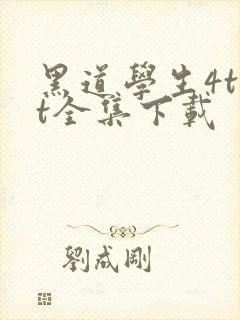 黑道學生4t
t全集下載
劉成剛